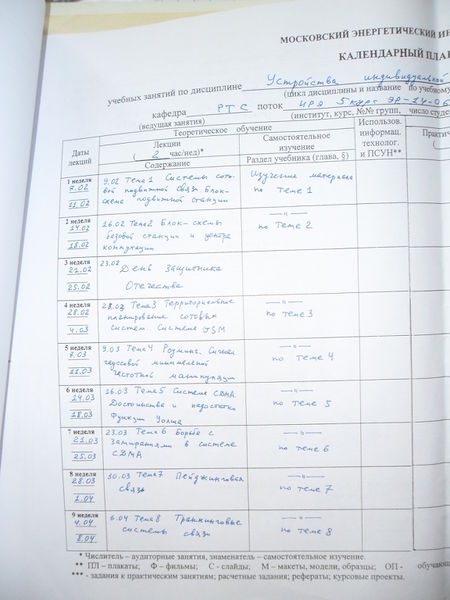 МОСКОВСКИЙ ЭНЕРГЕТИЧЕСКИЙ ИН
КАЛЕНДАРНЫЙ ПЛА
учебных занятий по дисциплине Устройства индивидуальной
(цикл дисциплины и название по учебному
кафедра РТС поток ИРЭ 5 курс ЭР-14-06
(ведущая занятия) (институт, курс, №№ групп, число студе
Даты лекций
Теоретическое обучение
Лекции
( 2 час/нед)*
Содержание
Самостоятельное изучение
Раздел учебника (глава, §)
Использов. информац. технолог. и ПСУН**
Практич
1 неделя
7.02
11.02
9.02 Тема 1 Системы сото-
вой подвижной связи Блок-
схема подвижной станции
Изучение материала
по Теме 1
2 неделя
14.02
18.02
16.02 Тема 2 Блок-схемы
базовой станции и центра
коммутации
—"—
по Теме 2
3 неделя
21.02
25.02
23.02
День Защитника
Отечества
4 неделя
28.02
4.03
Тема 3 Территориальное
планирование сотовых
систем Система GSM
—"—
по теме 3
5 неделя
7.03
11.03
9.03 Тема 4 Роуминг. Сигнал
гауссовой минимальной
частотной манипуляции
—"—
по Теме 4
6 неделя
14.03
18.03
16.03 Тема 5 Система CDMA
Достоинства и недостатки
Функции Уолша
—"—
по теме 5
7 неделя
21.03
25.03
23.03 Тема 6 Борьба с
замираниями в системе
CDMA
—"—
по теме 6
8 неделя
28.03
1.04
30.03 Тема 7 Пейджинговая
связь
—"—
по теме 7
9 неделя
4.04
8.04
6.04 Тема 8 Транкинговые
системы связи
—"—
по теме 8
* Числитель – аудиторные занятия, знаменатель – самостоятельное изучение.
** ПЛ – плакаты, Ф – фильмы; С - слайды; М – макеты, модели, образцы; ОП - обучающ
*** - задания к практическим занятиям; расчетные задания; рефераты; курсовые проекты.